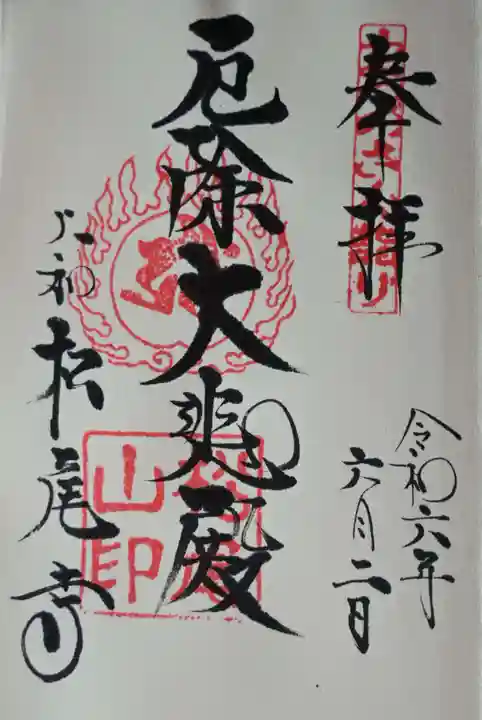 奉拝
令和六年
六月二日
厄除大悲殿
山印
大和松尾寺